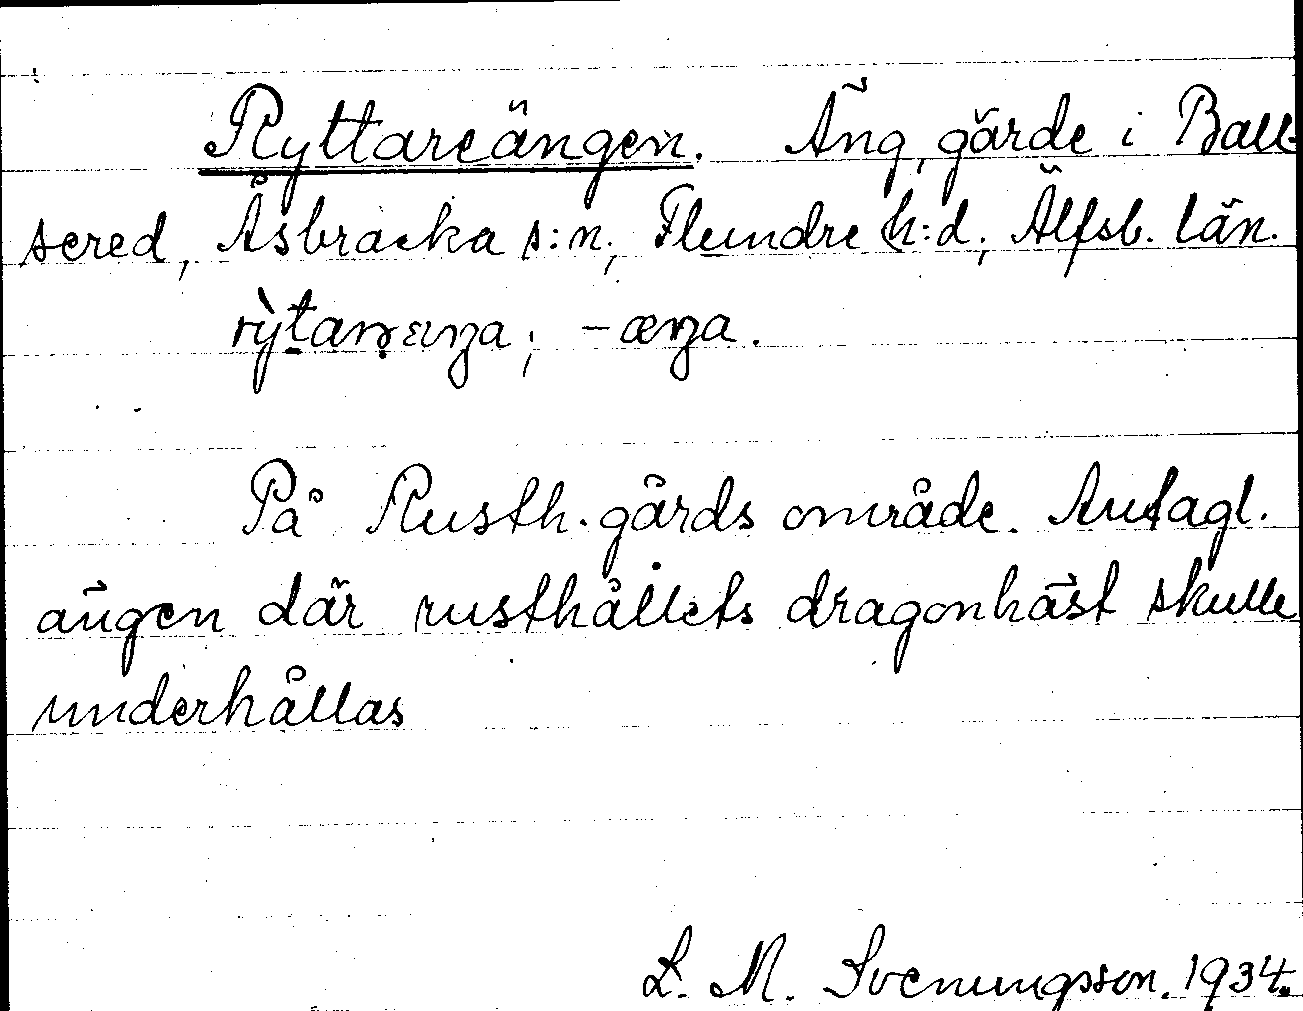 Ryttareängen. Äng, gärde i Ball-
sered, Åsbräcka s:n, Flundre h:d, Älfsb. län.
rỳtaɲɛŋa; -æŋa.
På Rusth.gårds område. Antagl.
ängen där rusthållets dragonhäst skulle
underhållas
L. M. Svenungsson. 1934.